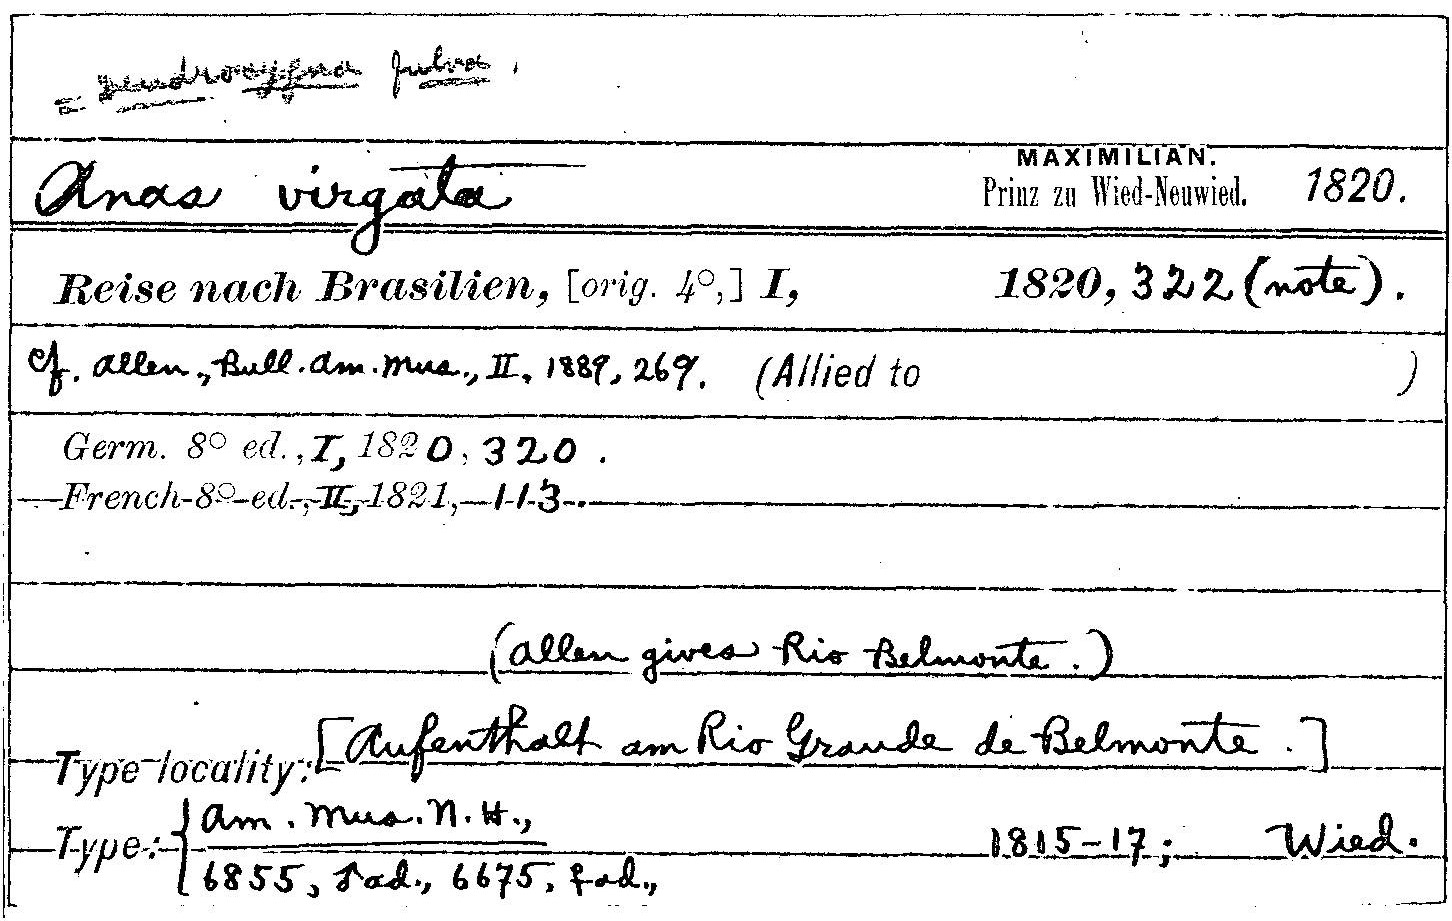 = Dendrocygna fulva.
Anas virgata MAXIMILIAN. Prinz zu Wied-Neuwied. 1820.
Reise nach Brasilien, [orig. 4°,] I, 1820, 322 (note).
cf. Allen, Bull. Am. Mus., II, 1889, 269. (Allied to )
Germ. 8° ed., I, 1820, 320.
French 8° ed., II, 1821, 113.
(Allen gives Rio Belmonte.)
Type locality: [Aufenthalt am Rio Grande de Belmonte.]
Type: { Am. Mus. N. H., 1815-17; Wied.
6855, ♂ ad., 6675, ♀ ad.,